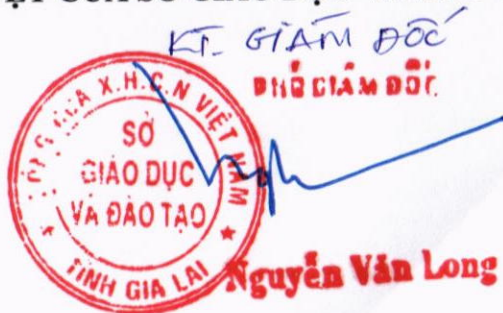 KT. GIÁM ĐỐC
PHÓ GIÁM ĐỐC
X.H.C.N VIỆT NAM
SỞ
GIÁO DỤC
VÀ ĐÀO TẠO
TỈNH GIA LAI
Nguyễn Văn Long